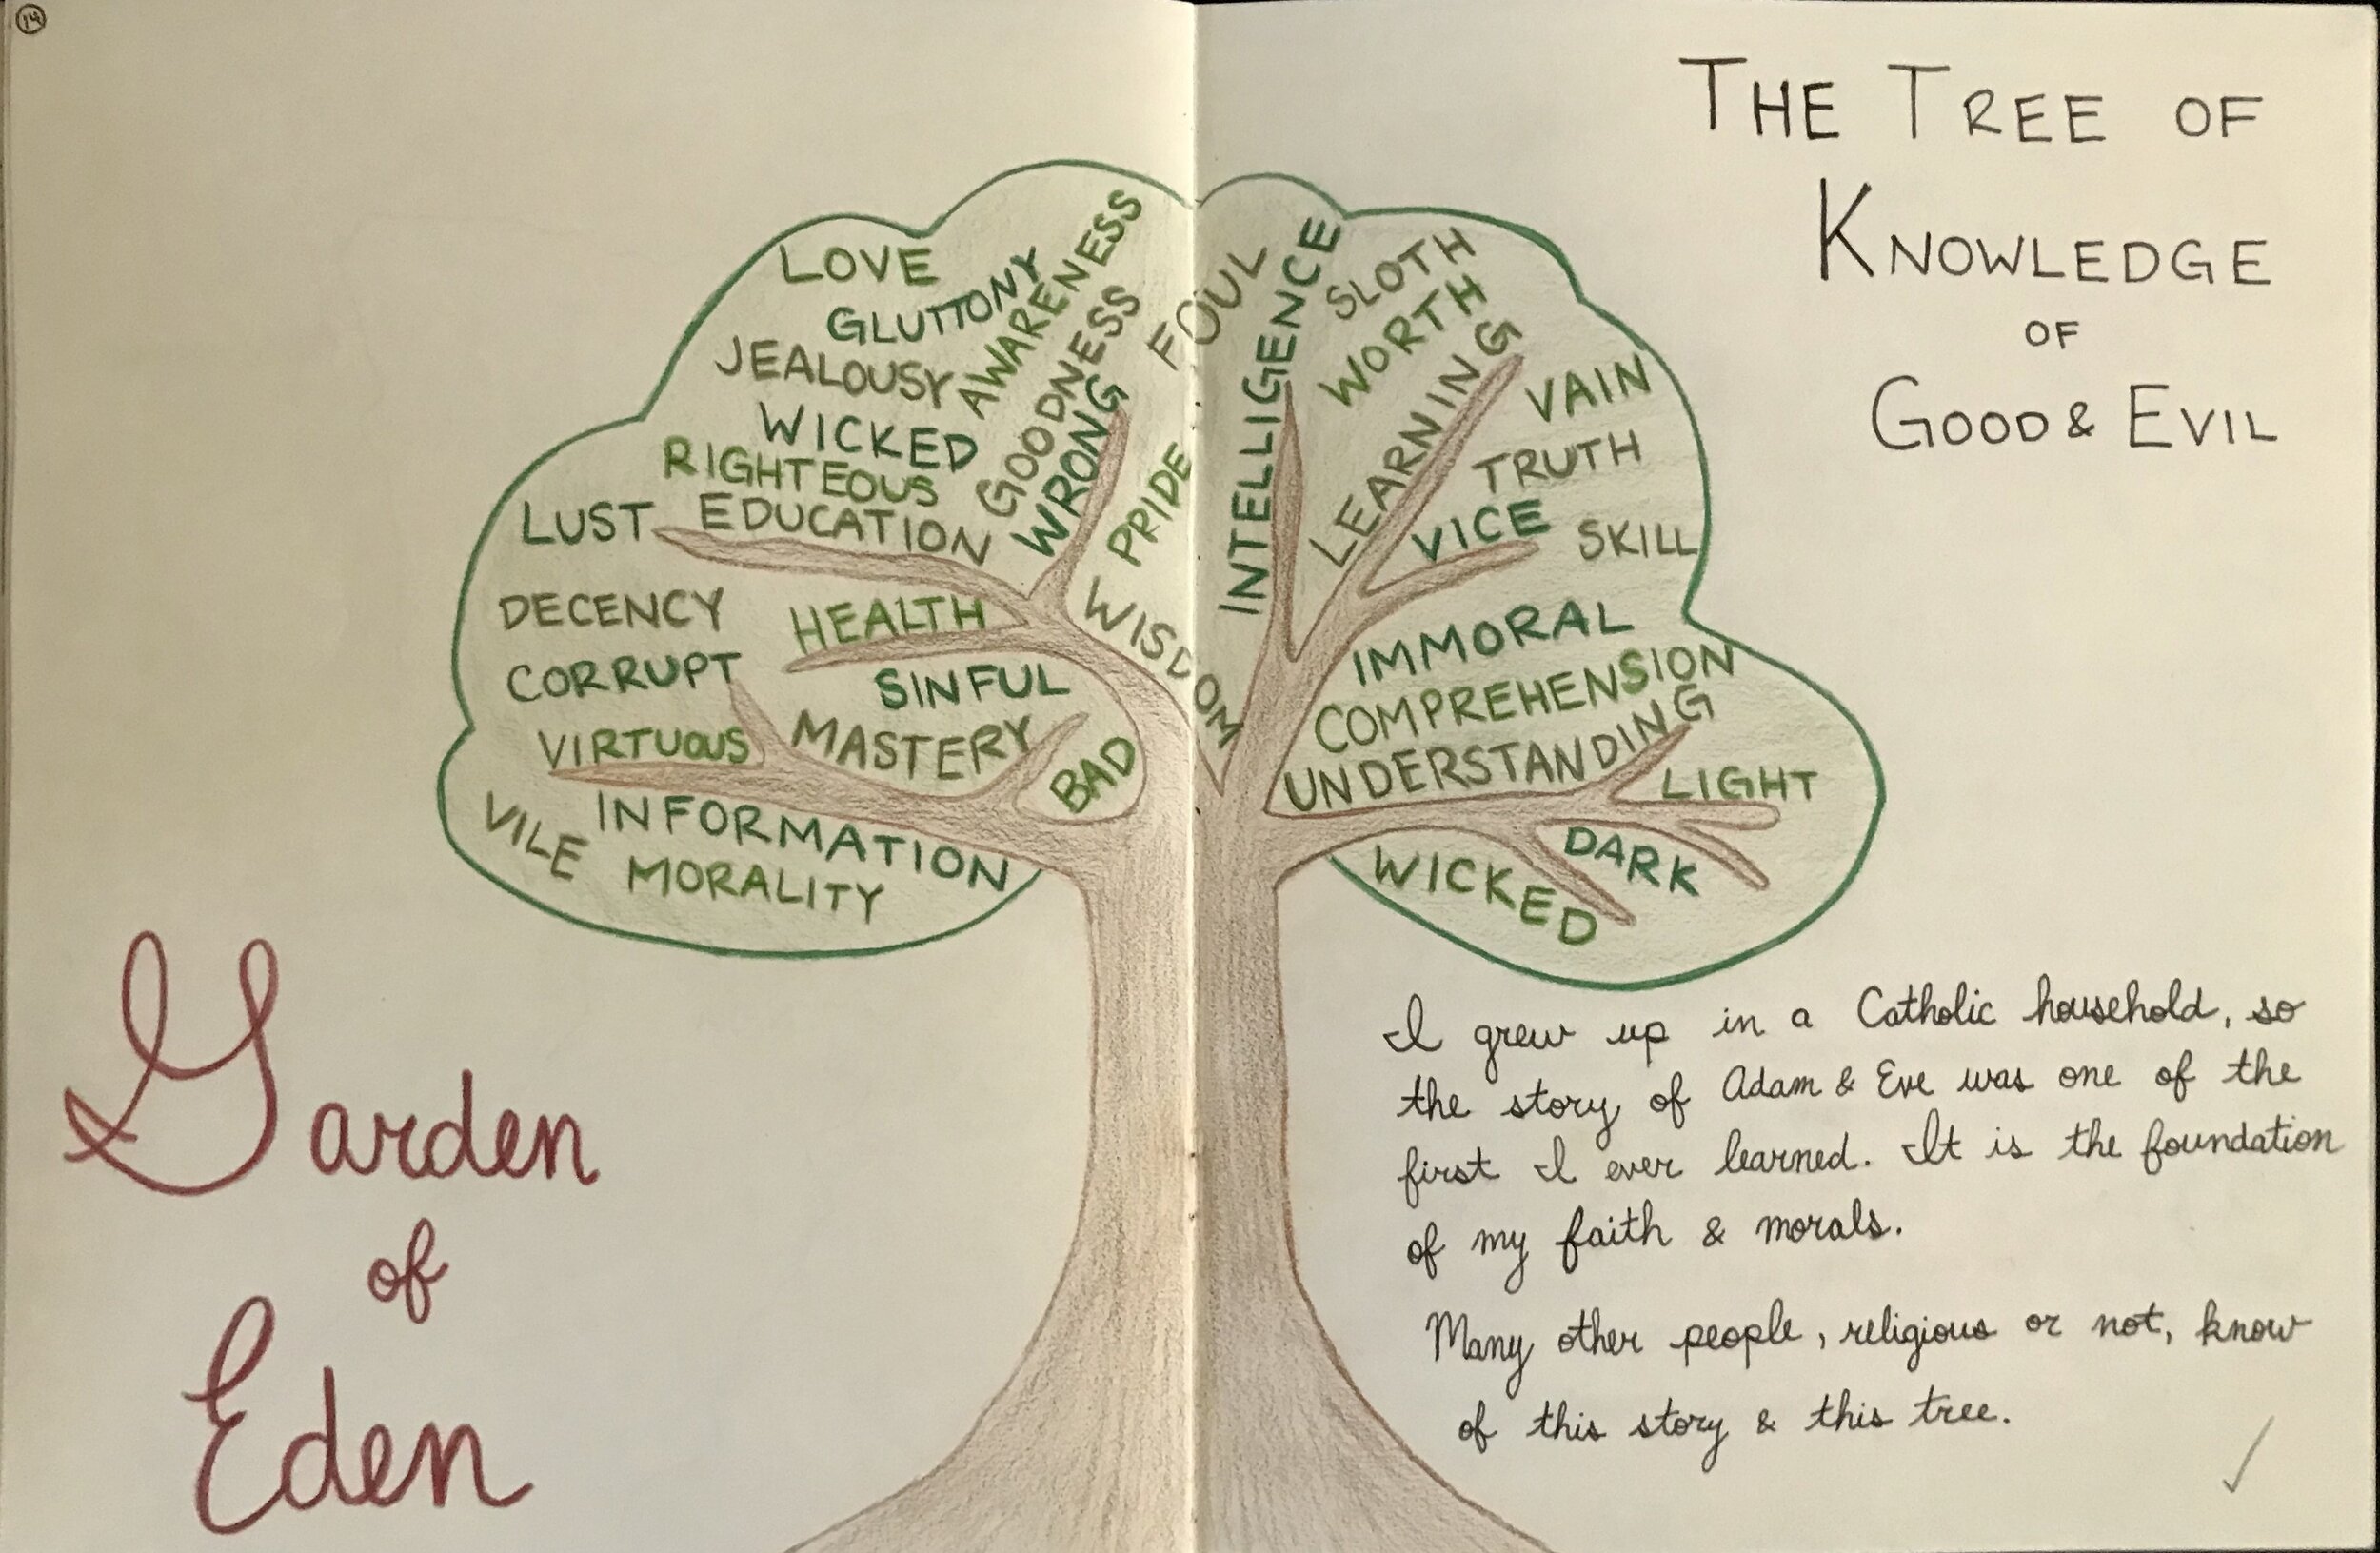 14
THE TREE OF
KNOWLEDGE
OF
GOOD & EVIL
LOVE
GLUTTONY
AWARENESS
JEALOUSY
GOODNESS
WICKED
WRONG
RIGHTEOUS
LUST
EDUCATION
PRIDE
FOUL
DECENCY
HEALTH
WISDOM
CORRUPT
SINFUL
VIRTUOUS
MASTERY
BAD
INFORMATION
VILE
MORALITY
INTELLIGENCE
SLOTH
WORTH
LEARNING
VAIN
TRUTH
VICE
SKILL
IMMORAL
COMPREHENSION
UNDERSTANDING
LIGHT
DARK
WICKED
Garden
of
Eden
I grew up in a Catholic household, so
the story of Adam & Eve was one of the
first I ever learned. It is the foundation
of my faith & morals.
Many other people, religious or not, know
of this story & this tree.